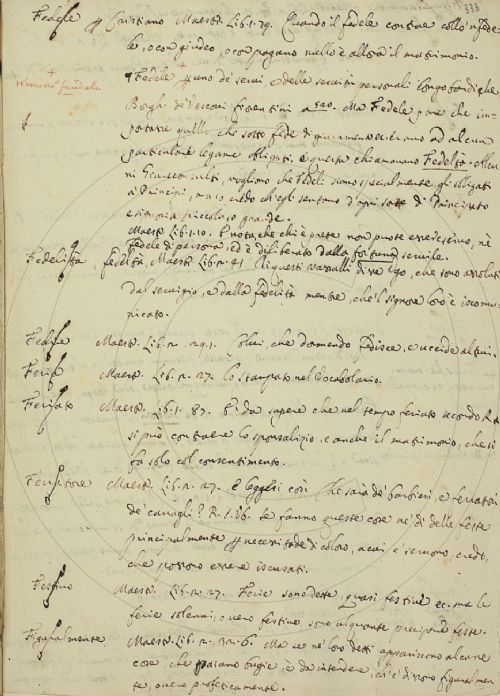 333
Fedele p Cristiano Maestr. Lib. 1. 79. Quando il fedele contrae coll'infede
le, o con giudeo, o con pagano nullo è allora il matrimonio.
Fedele p uno de' servi e delle servitù personali Longobardiche
termine feudale
Borghi de' Vescovi fiorentini a 520. Ma Fedele pare che im-
portasse quello, che sotto fede di giuramento erano ad alcun
particolare legame obbligati, e questa chiamavano Fedeltà. Alcu
ni Giureconsulti, vogliono che Fedeli siano specialmente gli obligati
a Principi, ma io credo ch'egli sentano d'ogni sorte di Principato
e signoria piccola, o grande.
Maestr. Lib. 1. 10. È nota, che chi è prete non puote essere servo, nè
fedele di persona, ed è diliberato dalla fortuna servile.
Fedelità fedeltà, Maestr. Lib. 2. 41. Di questi vassalli dirai Lgo, che sono assoluti
dal servigio, e dalla fedelità mentre, che'l signore loro è iscomu
nicato.
Maestr. Lib. 2. 29.1. Colui, che dormendo fedisce, e uccide altrui.
Maestr. Lib. 2. 27. lo stampato nel Vocabolario.
Feriato Maestr. Lib. 1. 87. È da sapere che nel tempo feriato secondo
si può contraere lo sponsalizio, e anche il matrimonio, che si
fa solo col consentimento.
Maestr. Lib. 2. 27. E leggesi così Che sarà de' barbieri, e ferratori
de' cavagli? R. Se fanno queste cose ne' dì delle feste
principalmente p necessitade di coloro, a cui e' servono, credo,
che possono essere iscusati.
Festino Maestr. Lib. 2. 27. Ferie sono dette, quasi festine ec. ma le
ferie solenni, overo festine sono alquante precipue feste.
Figuralmente Maestr. Lib. 2. 31. 6. Ma se ne' loro detti appariscono alcune
cose, che paiano bugie, è da intendere, ch'è' dissero figuralmen
te, overo profeticamente.